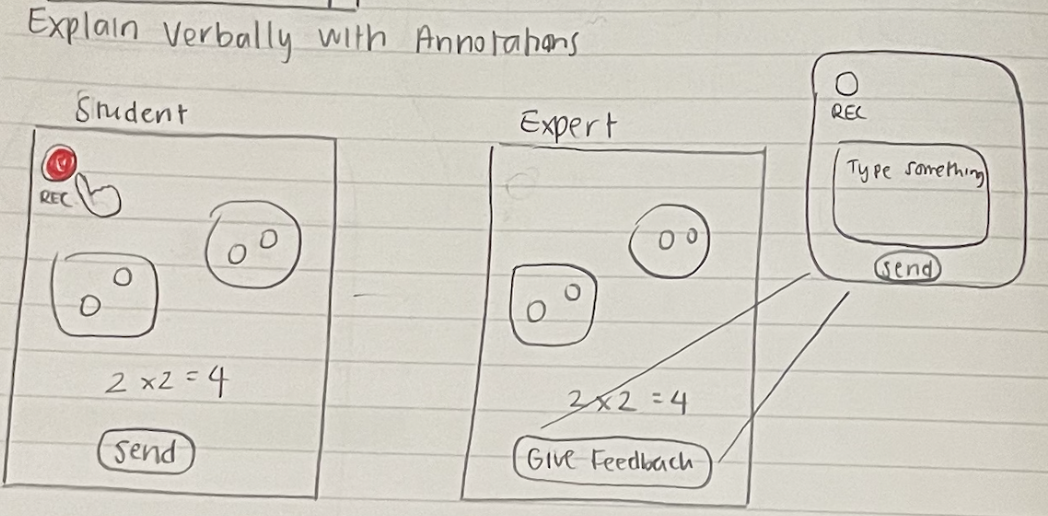 Explain Verbally with Annotations
Student
REC
2 x2 = 4
Send
Expert
2 x 2 = 4
Give Feedback
REC
Type something
Send